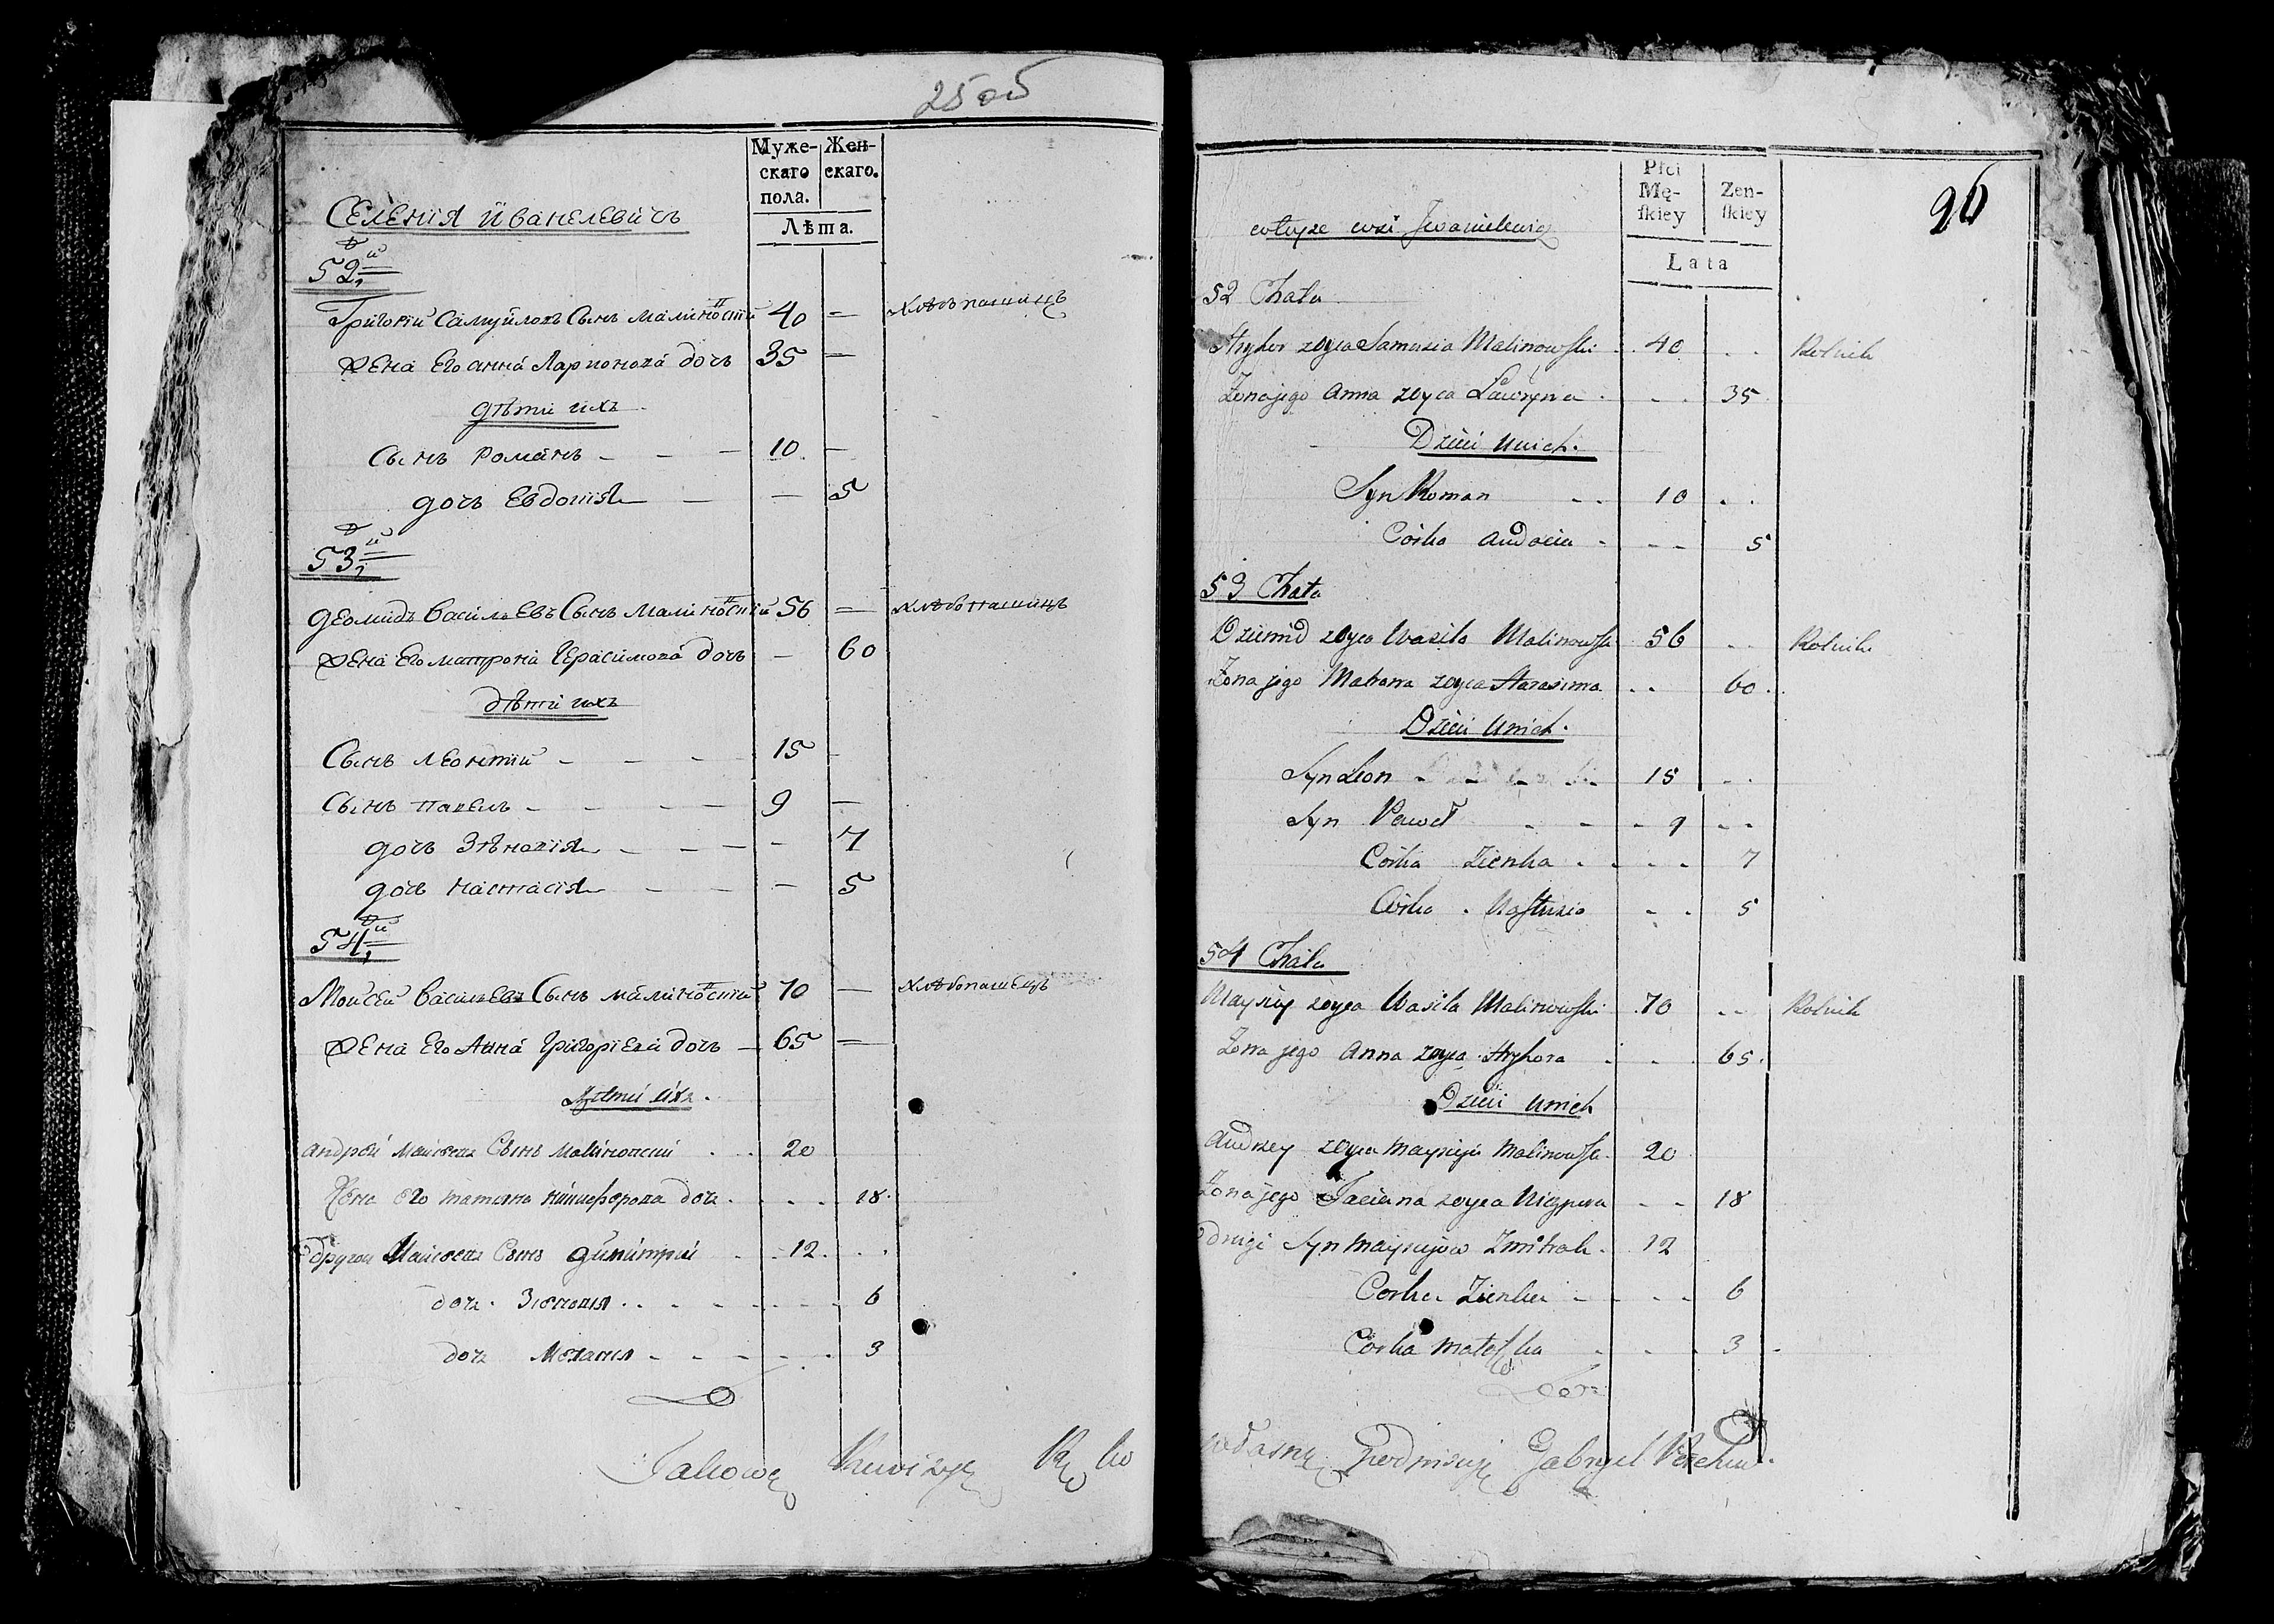 25 об
Муже-
скаго
пола.
Жен-
скаго.
Лѣта.
Селенія Иванелевичъ
52й
Григорій Самуйловъ Сынъ Малиновскій 40 — хлѣбпашицъ
Жена Его анна Ларионова дочъ 35 —
дѣти ихъ
Сынъ Романъ - - - 10 —
дочъ Евдокія — — 5
53й
Деомидъ Василъевъ Сынъ Малиновскій 56 — хлѣбопашицъ
Жена Его матрона Герасимова дочъ — 60
дѣти ихъ
Сынъ леонтий - - - 15 -
Сынъ павелъ - - - 9 —
дочъ Зѣновія - - - 7
дочъ настасія - - - 5
54й
Мойсей Василъевъ Сынъ малиновскій 70 — хлѣбопашецъ
Жена Его Анна Григоріева дочъ — 65 —
дѣти ихъ.
андрей Маисеевъ Сынъ малиновскій . . 20
Жена его татьяна никифорова доч. . . . 18.
другой Маисеевъ Сынъ димитрій . . 12. . .
доч. Зѣновія . . . . . 6
доч Меланія - - - - . 3
Takową Rewizyę Ręką
26
Płci
Mę-
skiey
Zen-
skiey
Lata
wsi Iwanilewicz
52 Chata
Hryhor zoyca Samusia Malinowski . . 40 . . Rolnik
Żona jego Anna zoyca Ławryna . . . 35
Dzieci Unich.
Syn Roman - - 10 . .
Córka Audocia - - - 5
53 Chata
Dziemid zoyca Wasila Malinowski 56 . . Rolnik
Żona jego Matrona zoyca Harasima . . 60 .
Dzieci Unich.
Syn Leon - - - - 15 - .
Syn Paweł - - - 9 - -
Córka Zienka . . . . 7
Córka . Nastazia - . 5
54 Chata
Maysiey zoyca Wasila Malinowski . 70 . . Rolnik
Żona jego Anna zoyca Hryhora . . . 65 .
Dzieci Unich
Andrzey zoyca Maysieja Malinowski . 20
Żona jego Taciana zoyca Niczypora - - 18
drugi Syn Maysiejów Zmitrok . 12
Corka Zienka - - - - 6
Corka Matesska . . . 3 .
własną Podpisuję Gabryel